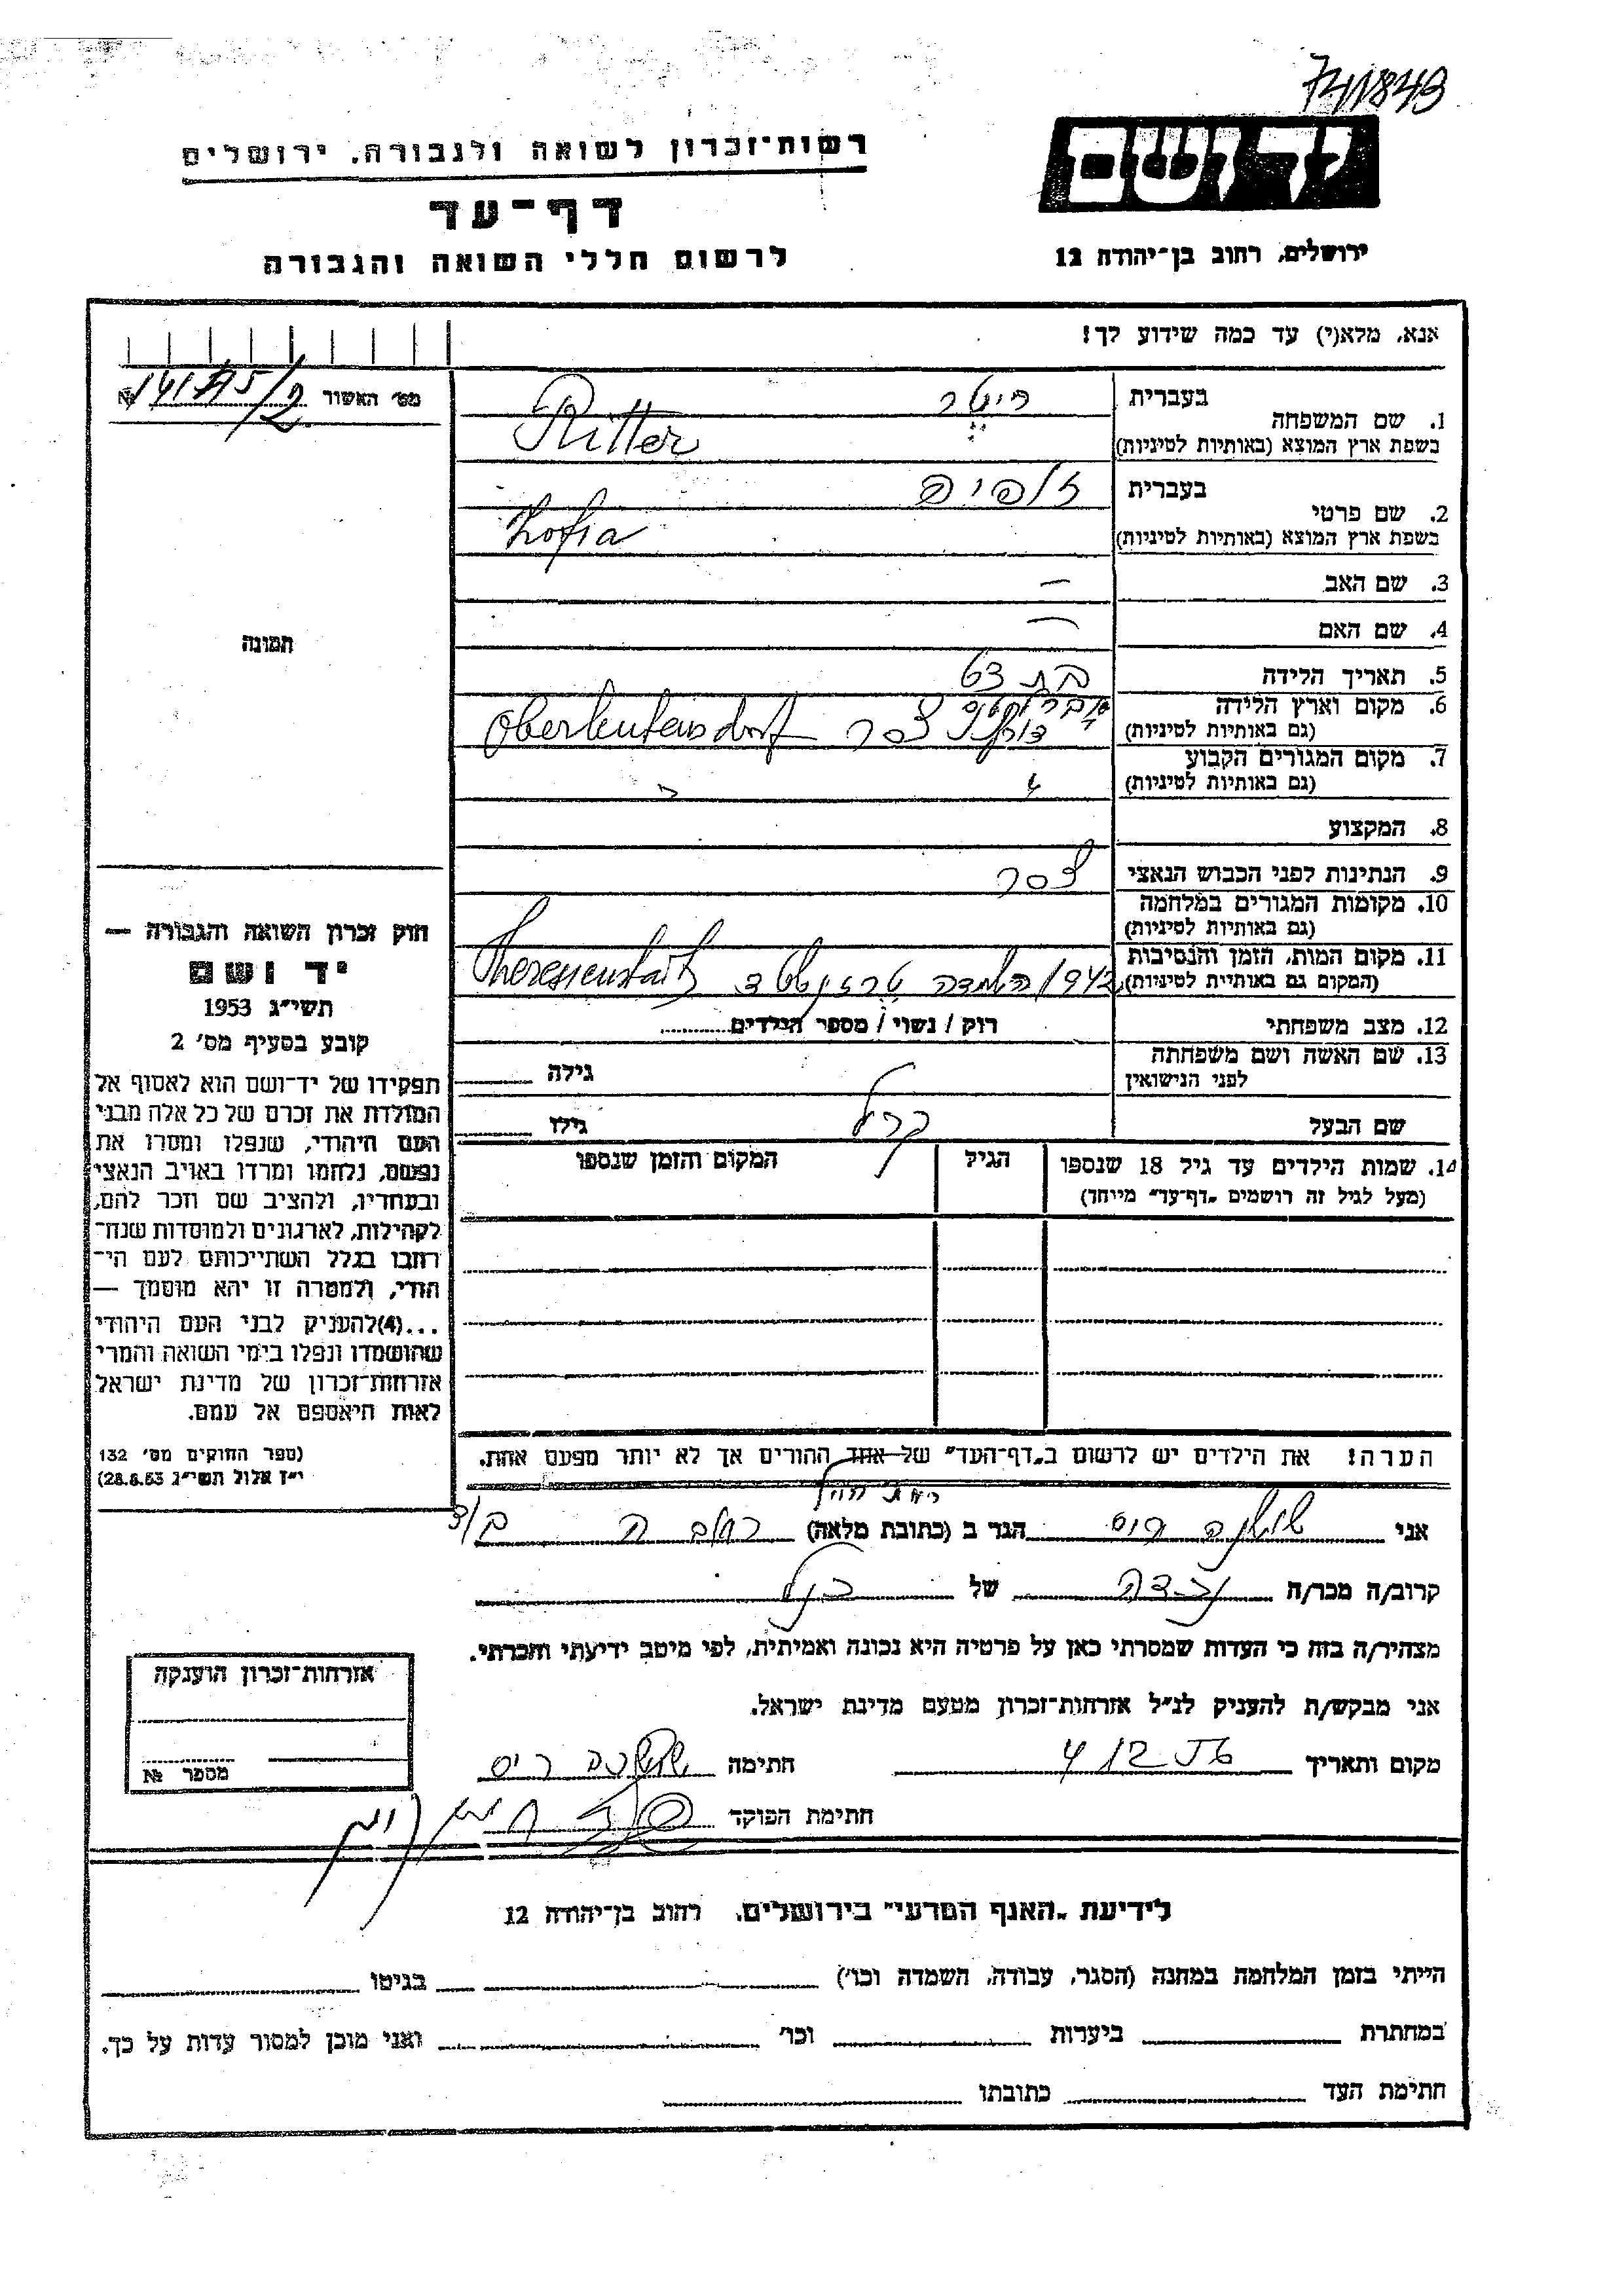 741843
יד ושם
רשות־זכרון לשואה ולגבורה, ירושלים
דף־עד
לרשום חללי השואה והגבורה
ירושלים, רחוב בן־יהודה 12
אנא, מלא(י) עד כמה שידוע לך!
מס׳ האשור №
1. שם המשפחה
בעברית ריטר
בשפת ארץ המוצא (באותיות לטיניות) Ritter
2. שם פרטי
בעברית
בשפת ארץ המוצא (באותיות לטיניות) Zofia
3. שם האב —
4. שם האם —
5. תאריך הלידה בת 63
6. מקום וארץ הלידה
(גם באותיות לטיניות) צכר Oberleutensdorf
7. מקום המגורים הקבוע
(גם באותיות לטיניות)
8. המקצוע
9. הנתינות לפני הכבוש הנאצי צכר
10. מקומות המגורים במלחמה
(גם באותיות לטיניות)
11. מקום המות, הזמן והנסיבות
(המקום גם באותיית לטיניות) 1942 השמדה טרזינשטד Theresienstadt
12. מצב משפחתי רוק / נשוי / מספר הילדים
13. שם האשה ושם משפחתה
לפני הנישואין גילה
שם הבעל קרל גילו
14. שמות הילדים עד גיל 18 שנספו
(מעל לגיל זה רושמים „דף־עד״ מייחד)
הגיל
המקום והזמן שנספו
תמונה
חוק זכרון השואה והגבורה —
יד ושם
תשי״ג 1953
קובע בסעיף מס׳ 2
תפקידו של יד־ושם הוא לאסוף אל
המולדת את זכרם של כל אלה מבני
העם היהודי, שנפלו ומסרו את
נפשם, נלחמו ומרדו באויב הנאצי
ובעוזריו, ולהציב שם וזכר להם,
לקהילות, לארגונים ולמוסדות שנח־
רחבו בגלל השתייכותם לעם הי־
הודי, ולמטרה זו יהא מוסמך —
...(4)להעניק לבני העם היהודי
שהושמדו ונפלו בימי השואה והמרי
אזרחות־זכרון של מדינת ישראל
לאות היאספם אל עמם.
(ספר החוקים מס׳ 132
י״ז אלול תשי״ג 28.8.53)
הערה! את הילדים יש לרשום ב„דף־העד״ של אחד ההורים אך לא יותר מפעם אחת.
אני שושנה ריס הגר ב (כתובת מלאה) רחוב ה
קרוב/ה מכר/ה נכדה של
מצהיר/ה בזה כי העדות שמסרתי כאן על פרטיה היא נכונה ואמיתית, לפי מיטב ידיעתי והכרתי.
אני מבקש/ת להעניק לנ״ל אזרחות־זכרון מטעם מדינת ישראל.
מקום ותאריך חתימה שושנה ריס
חתימת הפוקד
אזרחות־זכרון הוענקה
מספר №
לידיעת „האנף המדעי״ בירושלים, רחוב בן־יהודה 12
הייתי בזמן המלחמה במחנה (הסגר, עבודה, השמדה וכו׳) בגיטו
במחתרת ביערות וכו׳ ואני מוכן למסור עדות על כך.
חתימת העד כתובתו